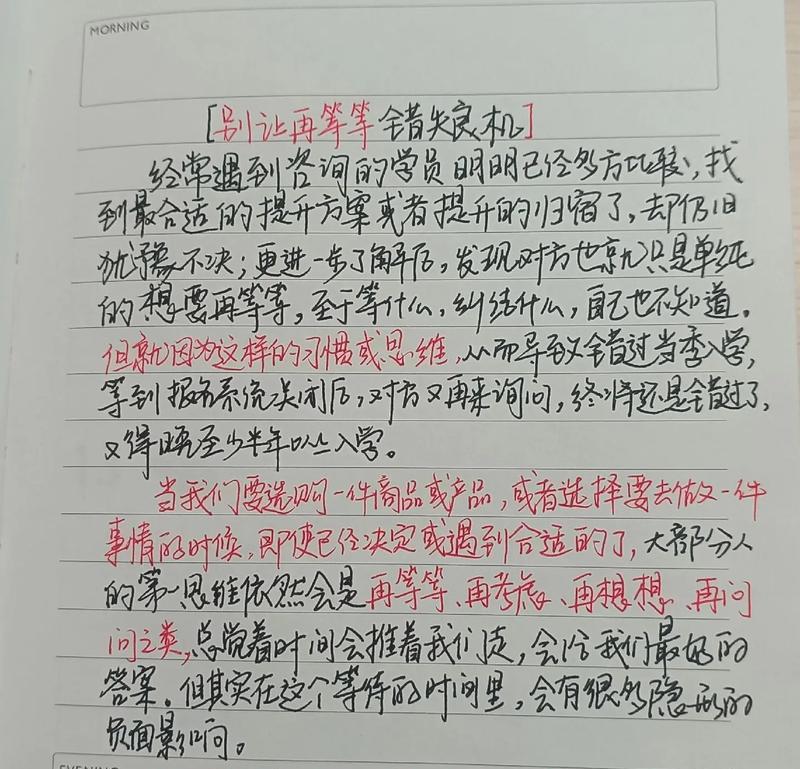 MORNING
[别让再等等错失良机]
经常遇到咨询的学员明明已经多方比较,找
到最合适的提升方案或者提升的归宿了,却仍旧
犹豫不决;更进一步了解后,发现对方也就只是单纯
的想要再等等,至于等什么,纠结什么,自己也不知道。
但就因为这样的习惯或思维,从而导致错过当季入学,
等到报名系统关闭后,对方又再来询问,终将还是错过了,
又得晚至少半年以上入学。
当我们要选购一件商品或产品,或者选择要去做一件
事情的时候,即使已经决定或遇到合适的了,大部分人
的第一思维依然会是再等等、再考虑、再想想、再问
问之类,总觉着时间会推着我们走,会给我们最好的
答案。但其实在这个等待的时间里,会有很多隐形的
负面影响。
EVENING